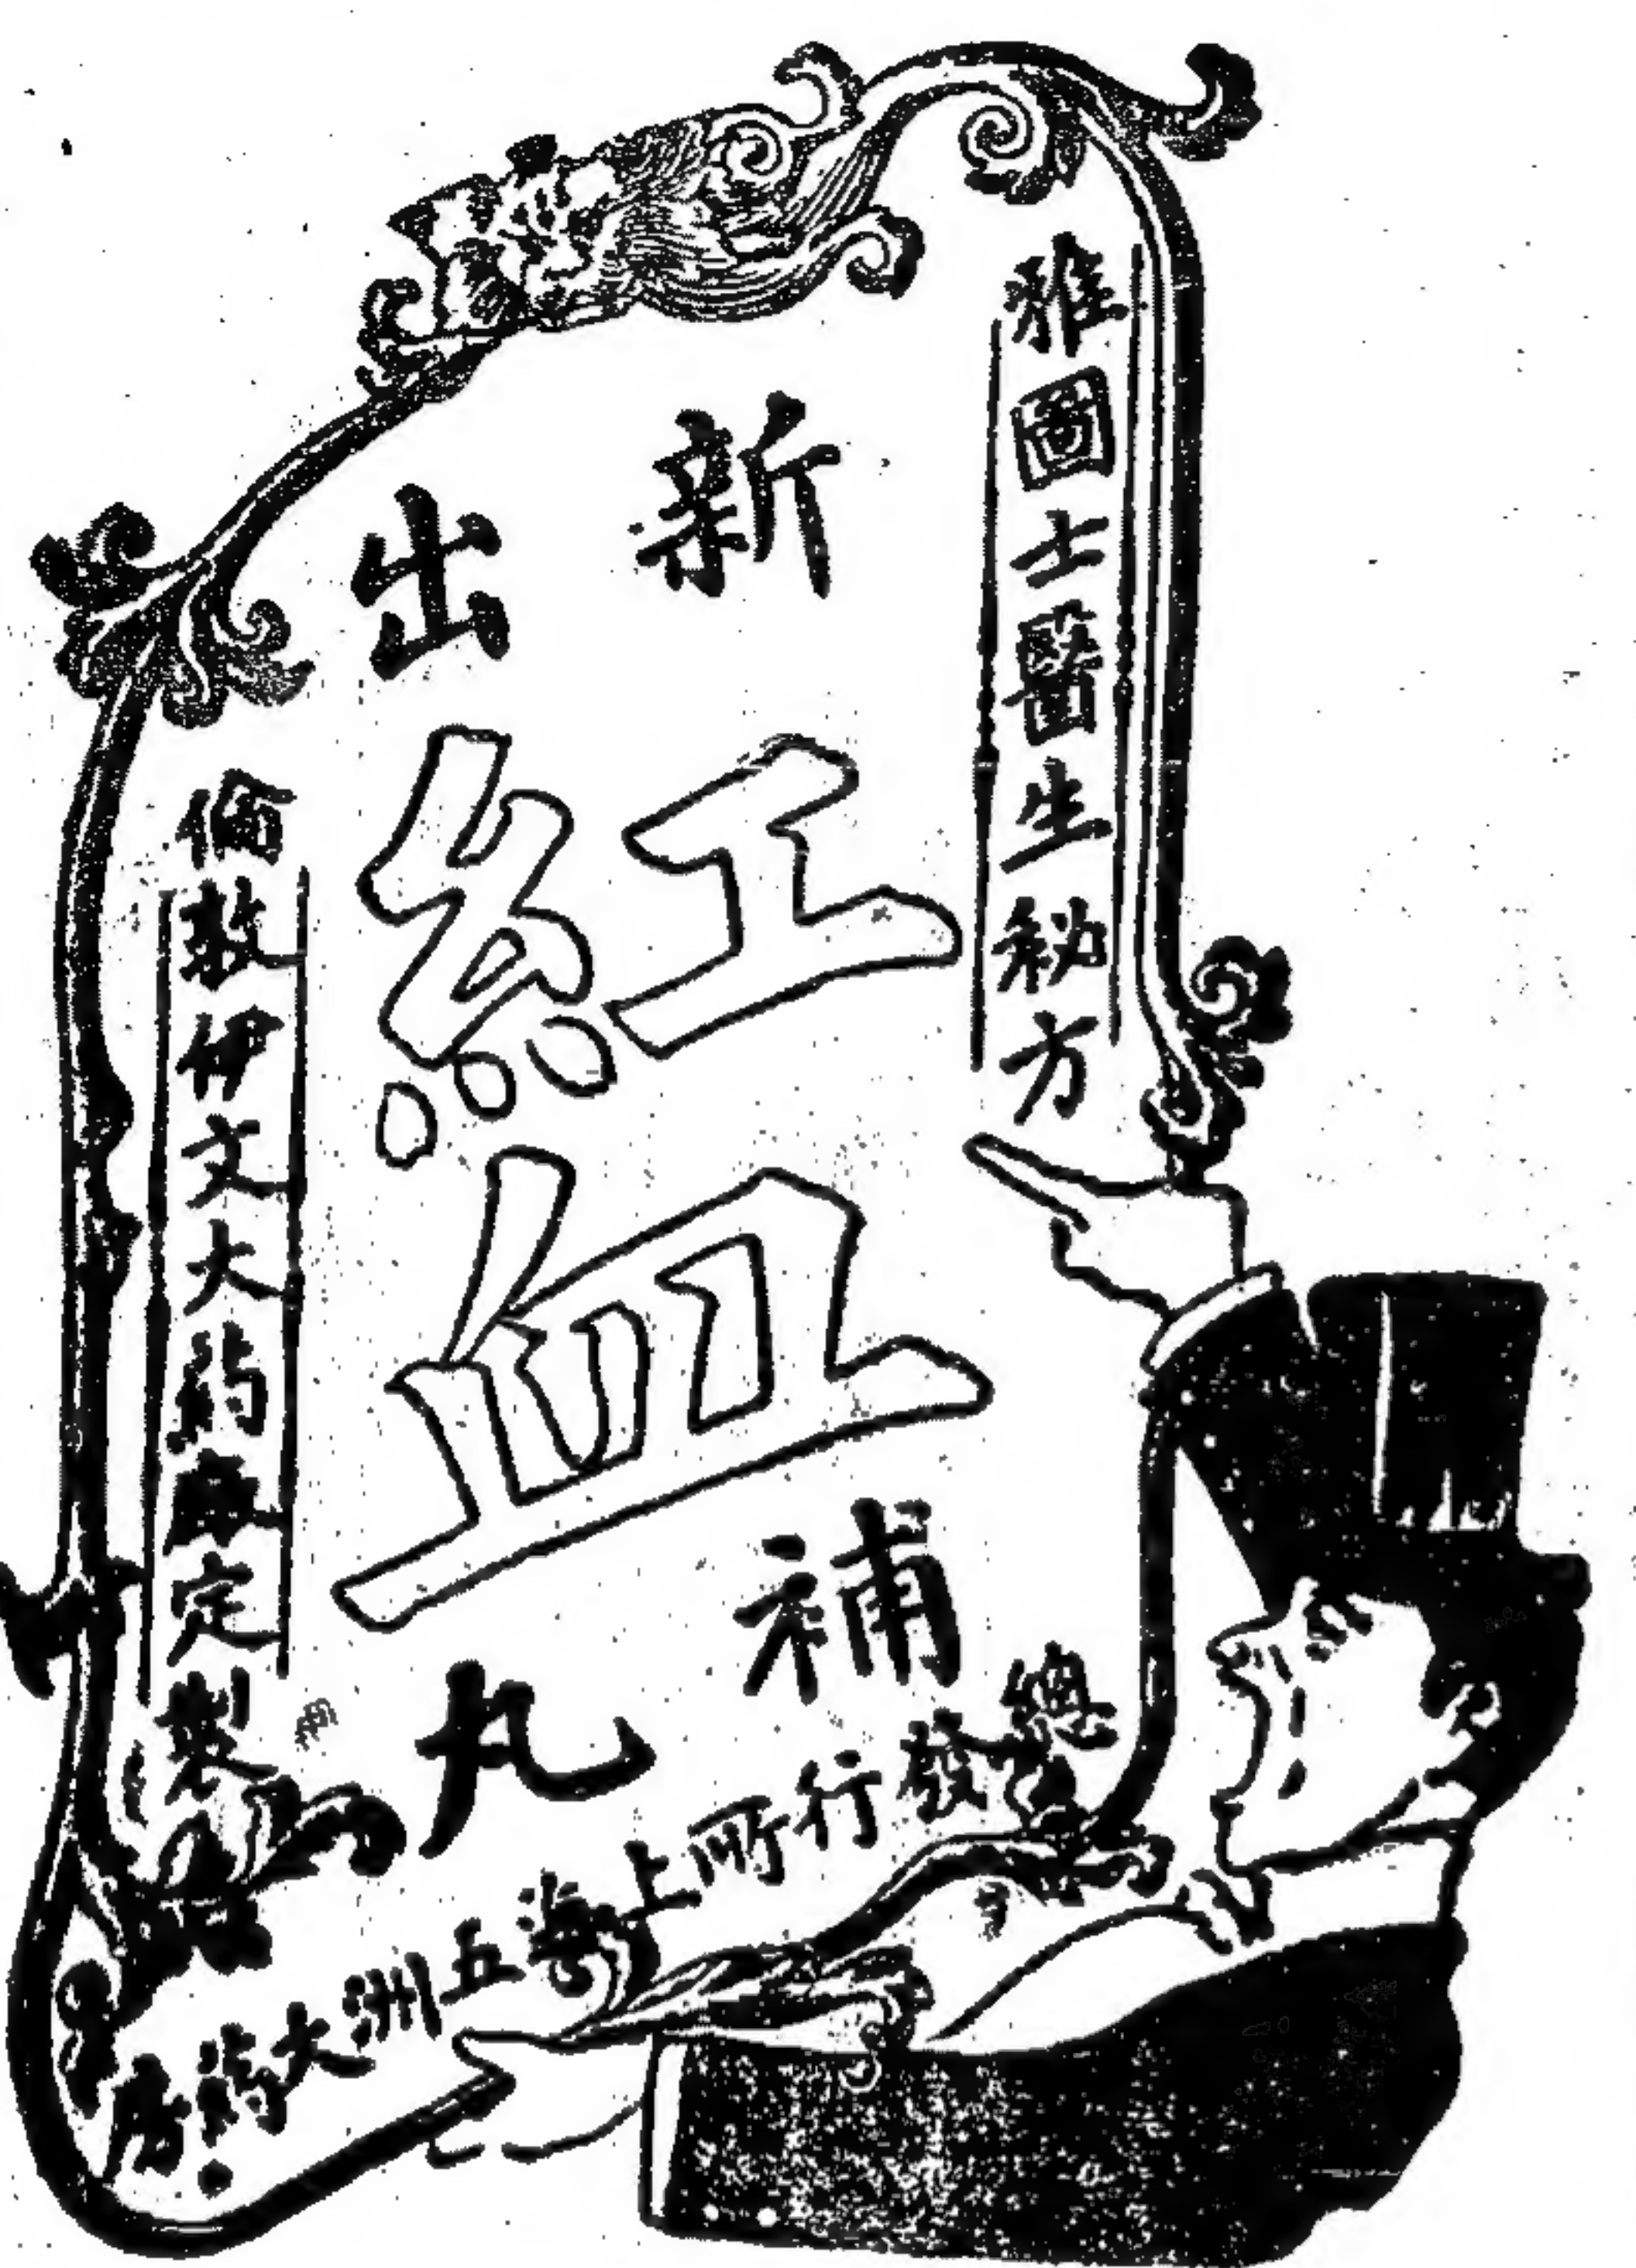 雅圖士醫生秘方
新出
紅血
補丸
倫敦伊文大药廠定製
總發行所上海五洲大葯房